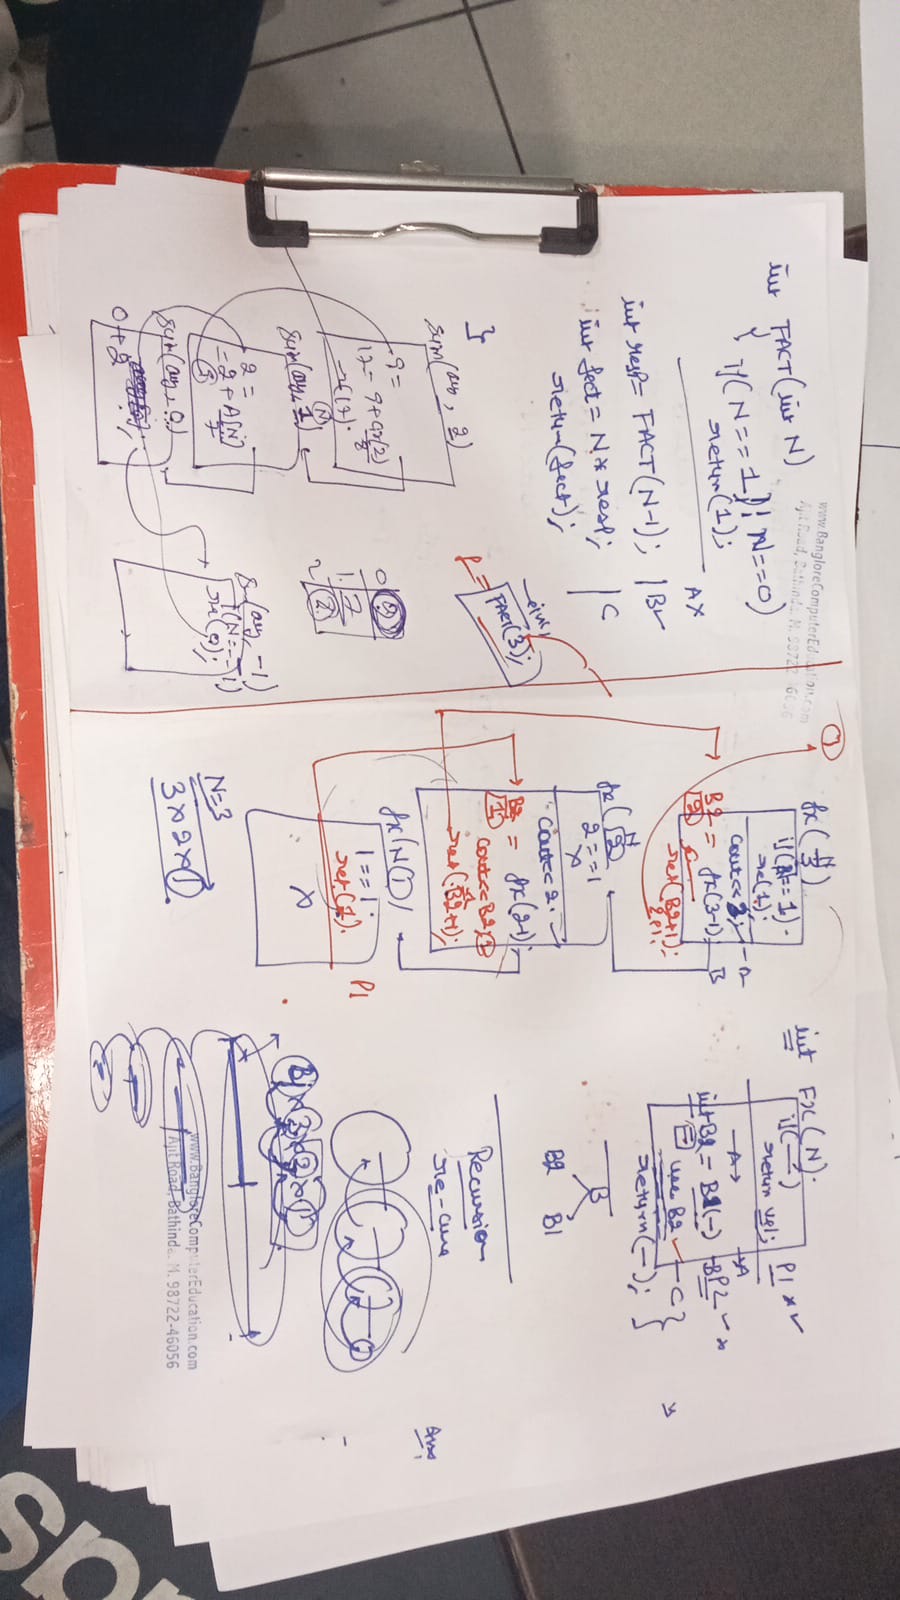 www.BangloreComputerEducation.com
Ajit Road, Bathinda. M. 98722-46056
int FACT(int N)
{
if(N==1 || N==0)
return(1);
AX
int resp= FACT(N-1); | B✓
int fact = N * resp; | C
return(fact);
}
FACT(3);
sum(arr, 2)
9=
sum(arr, 1)
2=
=2+A[N]
7
sum(arr, 0)
0+2
0 2
1. 7
2
(arr, -1)
fx(N
3)
if( == 1)
re(1);
cout<< 3; - A
B2 = fx(3-1) B
2
ret(B2+1);
2+1
fx(N
2)
2==1
X
cout<< 2.
B2 = fx(2-1);
1
cout<<B2;
ret(B2+1);
fx(N(1)
1==1;
ret(1). P1
X
N=3
3x2x1.
int FX(N).
if(—)
return val; P1 x✓
A → A
int B2 = B1(-) B P2 ✓ x
use B2 ✓ C }
return(-);
B
B2 B1
Recursion
re-cure
Ans,
x 3 x 2 x 1
www.BangloreComputerEducation.com
Ajit Road, Bathinda. M. 98722-46056
sp